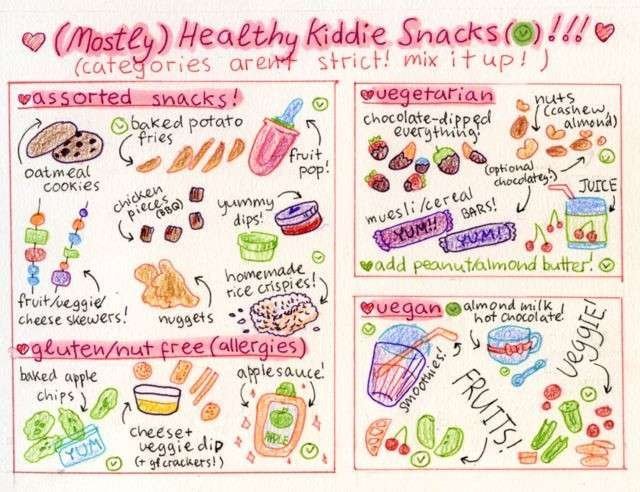 (Mostly) Healthy Kiddie Snacks ( )!!!
(categories aren't strict! mix it up!)
assorted snacks!
oatmeal
cookies
baked potato
fries
fruit
pop!
chicken
pieces
(BBQ)
yummy
dips!
fruit/veggie/
cheese skewers!
nuggets
homemade
rice crispies!
gluten/nut free (allergies)
baked apple
chips
YUM
cheese+
veggie dip
(+ gf crackers!)
applesauce!
APPLE
vegetarian
chocolate-dipped
everything!
nuts
(cashew,
almond)
(optional
chocolatey!)
muesli/cereal
BARS!
YUM!!
YUM!
JUICE
add peanut/almond butter!
vegan
almond milk
hot chocolate!
smoothies!
FRUITS!
VEGGIE!